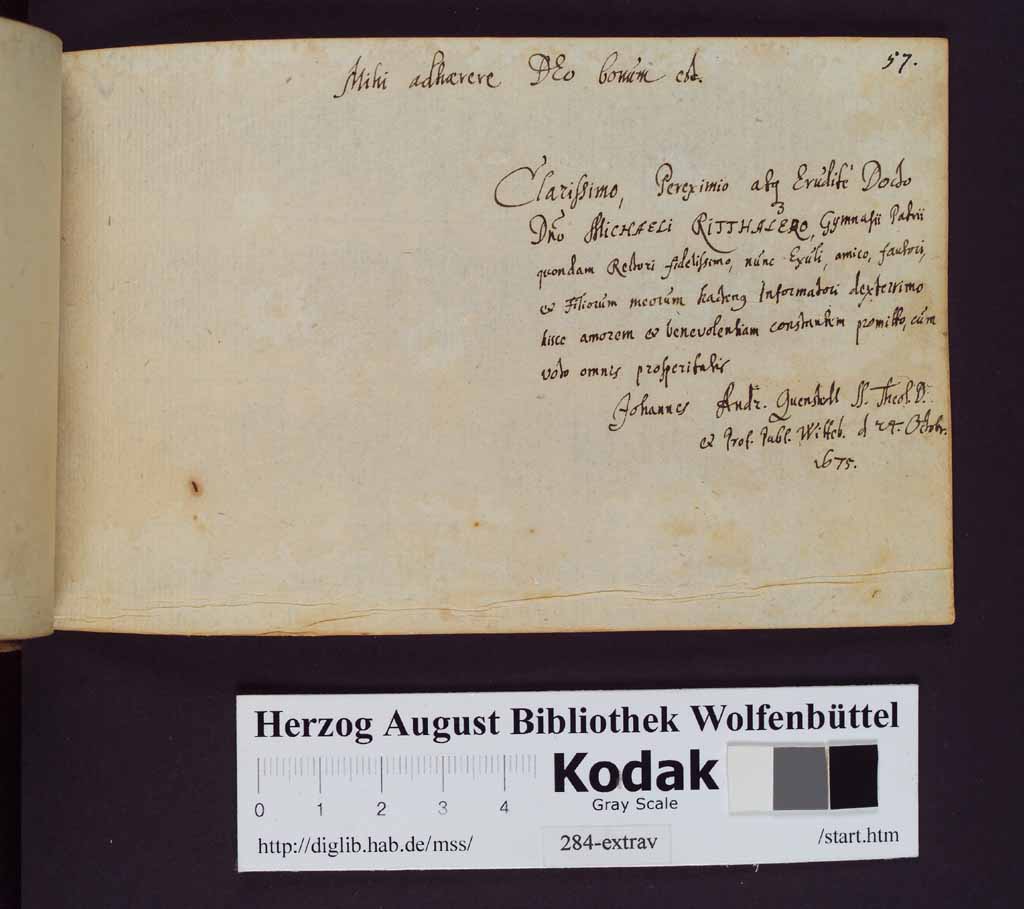 57.
Mihi adhærere DEo bonum est.
Clarissimo, Pereximio atq Erudité Docto
Dno MICHAELI RITTHALERO, Gymnasii Patrii
quondam Rectori fidelissimo, nunc Exuli, amico, fautori,
et Filiorum meorum hactenq Informatori dexterrimo
hisce amorem et benevolentiam constantem promitto, cum
voto omnis prosperitatis
Johannes Andr. Quenstedt SS. Theol. D.
et Prof. Publ. Witteb. d 24. Octobr.
1675.
Herzog August Bibliothek Wolfenbüttel
0 1 2 3 4
Kodak
Gray Scale
http://diglib.hab.de/mss/
284-extrav
/start.htm